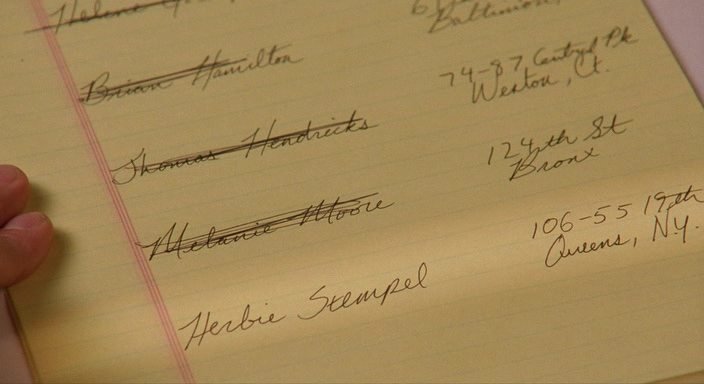 Helene
Baltimore,
Brian Hamilton
74-87 Central Pk
Weston, Ct.
Thomas Hendricks
124th St
Bronx
Melanie Moore
106-55 19th
Queens, N.Y.
Herbie Stempel